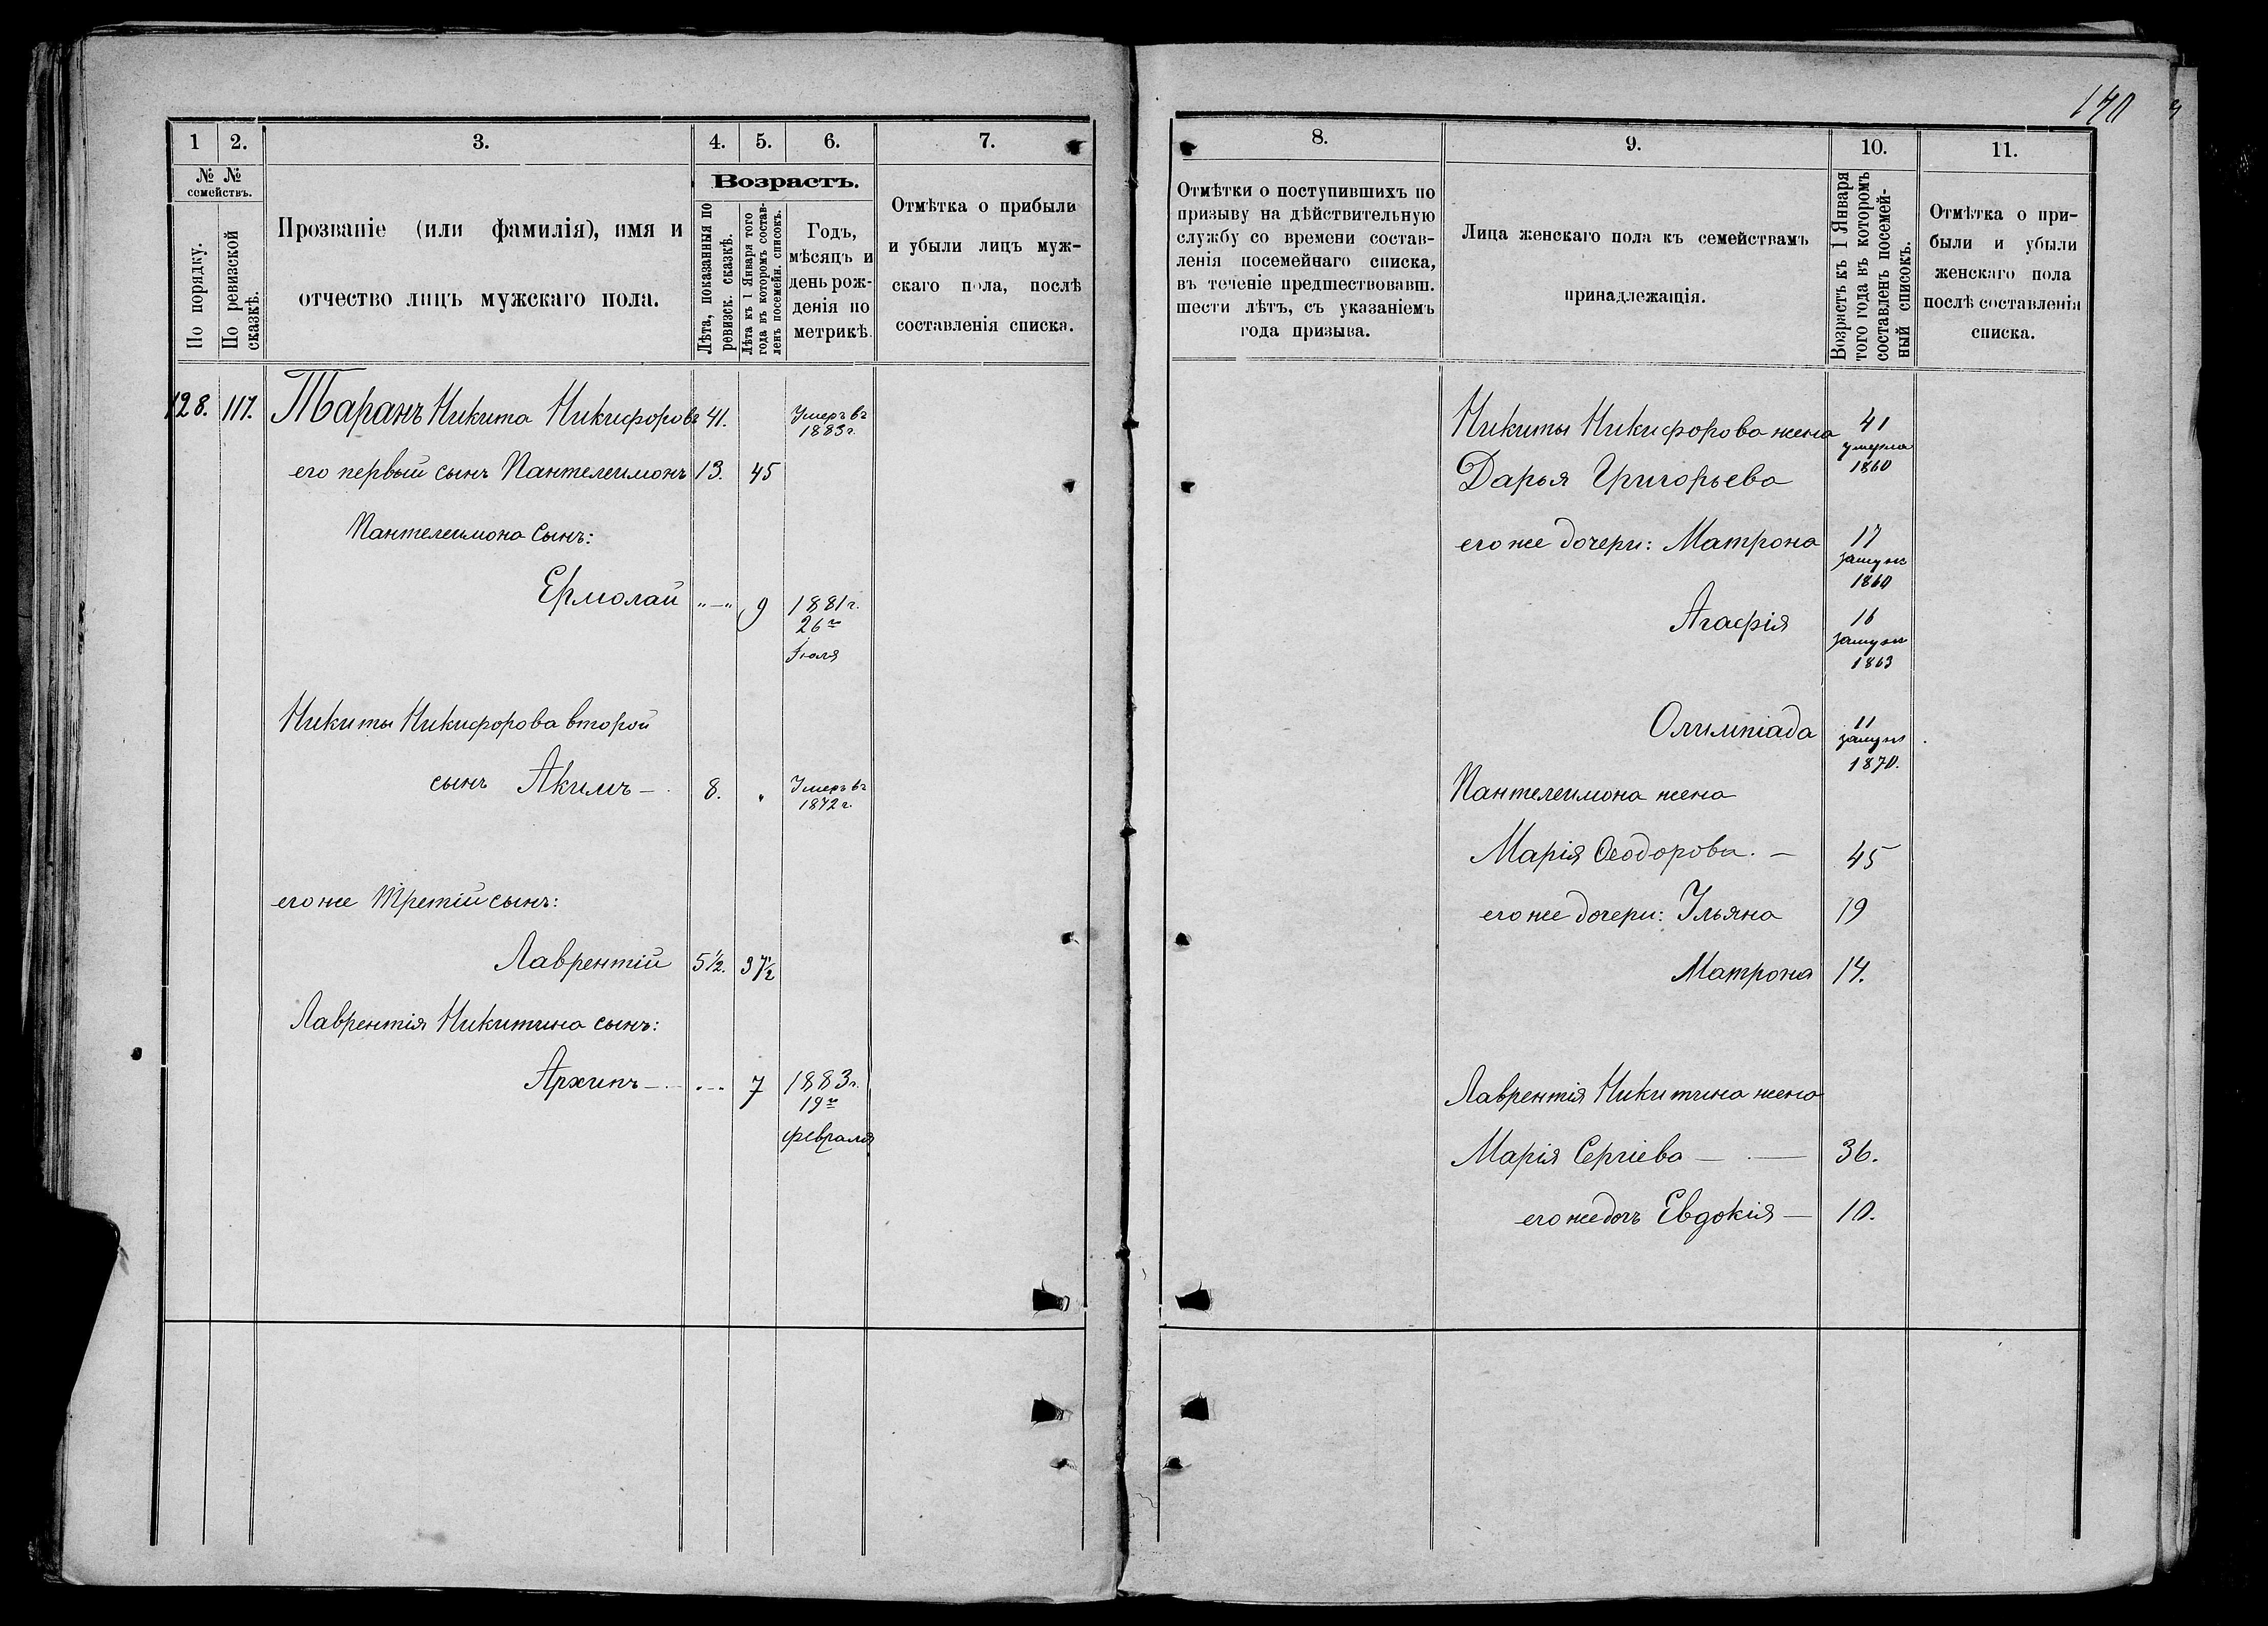 170
1 2. 3. 4. 5. 6. 7.
№ №
семействъ.
По порядку.
По ревизской
сказкѣ.
Прозваніе (или фамилія), имя и
отчество лицъ мужскаго пола.
Возрастъ.
Лѣта, показанныя по
ревизск. сказкѣ.
Лѣта къ 1 Января того
года въ которомъ состав-
ленъ посемейн. списокъ.
Годъ,
мѣсяцъ и
день рож-
денія по
метрикѣ.
Отмѣтка о прибыли
и убыли лицъ муж-
скаго пола, послѣ
составленія списка.
128. 117. Таранъ Никита Никифоровъ 41. Умеръ въ
1883 г.
его первый сынъ Пантелеимонъ 13. 45
Пантелеимона сынъ:
Ермолай „—„ 9 1881 г.
26го
Іюля
Никиты Никифорова второй
сынъ Акимъ — 8. „ Умеръ въ
1872 г.
его же Третій сынъ:
Лаврентій 5½. 37½
Лаврентія Никитина сынъ:
Архипъ — 7 1883 г.
19го
февраля
8. 9. 10. 11.
Отмѣтки о поступившихъ по
призыву на дѣйствительную
службу со времени состав-
ленія посемейнаго списка,
въ теченіе предшествовавш.
шести лѣтъ, съ указаніемъ
года призыва.
Лица женскаго пола къ семействамъ
принадлежащія.
Возрастъ къ 1 Января
того года въ которомъ
составленъ посемей-
ный списокъ.
Отмѣтка о при-
были и убыли
женскаго пола
послѣ составленія
списка.
Никиты Никифорова жена 41
умерла
1860
Дарья Григорьева
его же дочери: Матрона 17
замуж
1860
Агафія 16
замуж
1863
Олимпіада 11
замуж
1870.
Пантелеимона жена
Марія Ѳеодорова. — 45
его же дочери: Ульяна 19
Матрона 14.
Лаврентія Никитина жена
Марія Сергіева — — 36.
его же дочь Евдокія — 10.